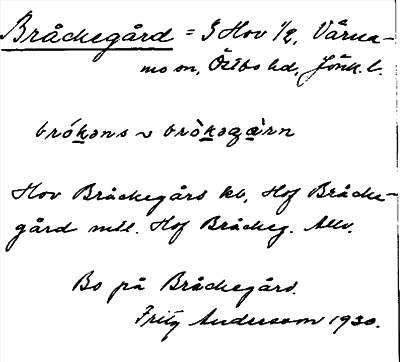 Bråckegård = S Hov 1/2, Värna-
mo sn, Östbo hd, Jönk. l.
brók̲əns ~ brò̀k̲əgæ̀rn
Hov Bråckegårs kb, Hof Bråcke-
gård mtl. Hof Bråckeg. Allv.
Bo på Bråckegårs.
Fritz Andersson 1930.